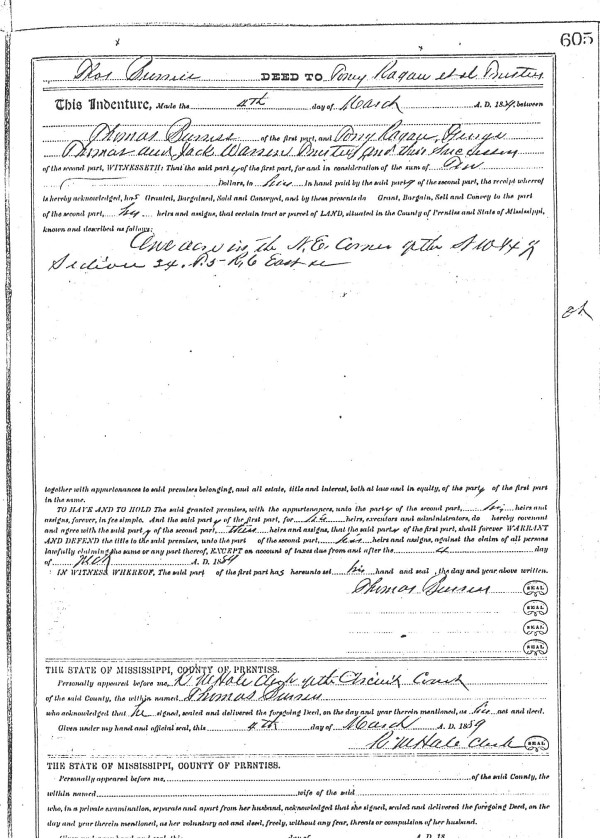 605
Thos Burress DEED TO Tony Ragan et al Trustees
This Indenture, Made the 4th day of March A. D. 1889, between
Thomas Burress of the first part, and Tony Ragan, Gengs
Thomas and Jack Warren Trustees and their Successors
of the second part, WITNESSETH: That the said party of the first part, for and in consideration of the sum of
Dollars, to his in hand paid by the said party of the second part, the receipt whereof
is hereby acknowledged, has Granted, Bargained, Sold and Conveyed, and by these presents do Grant, Bargain, Sell and Convey to the part
of the second part, heirs and assigns, that certain tract or parcel of LAND, situated in the County of Prentiss and State of Mississippi,
known and described as follows:
One acre in the N.E. Corner of the 1/4 of
Section 34. 5 R. 6 East
together with appurtenances to said premises belonging, and all estate, title and interest, both at law and in equity, of the party of the first part
in the same.
TO HAVE AND TO HOLD The said granted premises, with the appurtenances, unto the party of the second part, his heirs and
assigns, forever, in fee simple. And the said party of the first part, for his heirs, executors and administrators, do hereby covenant
and agree with the said party of the second part, their heirs and assigns, that the said party of the first part, shall forever WARRANT
AND DEFEND the title to the said premises, unto the part of the second part, his heirs and assigns, against the claim of all persons
lawfully claiming the same or any part thereof, EXCEPT on account of taxes due from and after the 4 day
of Mch A. D. 1889
IN WITNESS WHEREOF, The said part of the first part has hereunto set his hand and seal, the day and year above written.
Thomas Burress SEAL
SEAL
SEAL
SEAL
THE STATE OF MISSISSIPPI, COUNTY OF PRENTISS.
Personally appeared before me, R M Hale Clerk of the Circuit Court
of the said County, the within named Thomas Burress
who acknowledged that he signed, sealed and delivered the foregoing Deed, on the day and year therein mentioned, as his act and deed.
Given under my hand and official seal, this 4th day of March A. D. 1889
R. M Hale Clerk SEAL
THE STATE OF MISSISSIPPI, COUNTY OF PRENTISS.
Personally appeared before me, of the said County, the
within named wife of the said
who, in a private examination, separate and apart from her husband, acknowledged that she signed, sealed and delivered the foregoing Deed, on the
day and year therein mentioned, as her voluntary act and deed, freely, without any fear, threats or compulsion of her husband.